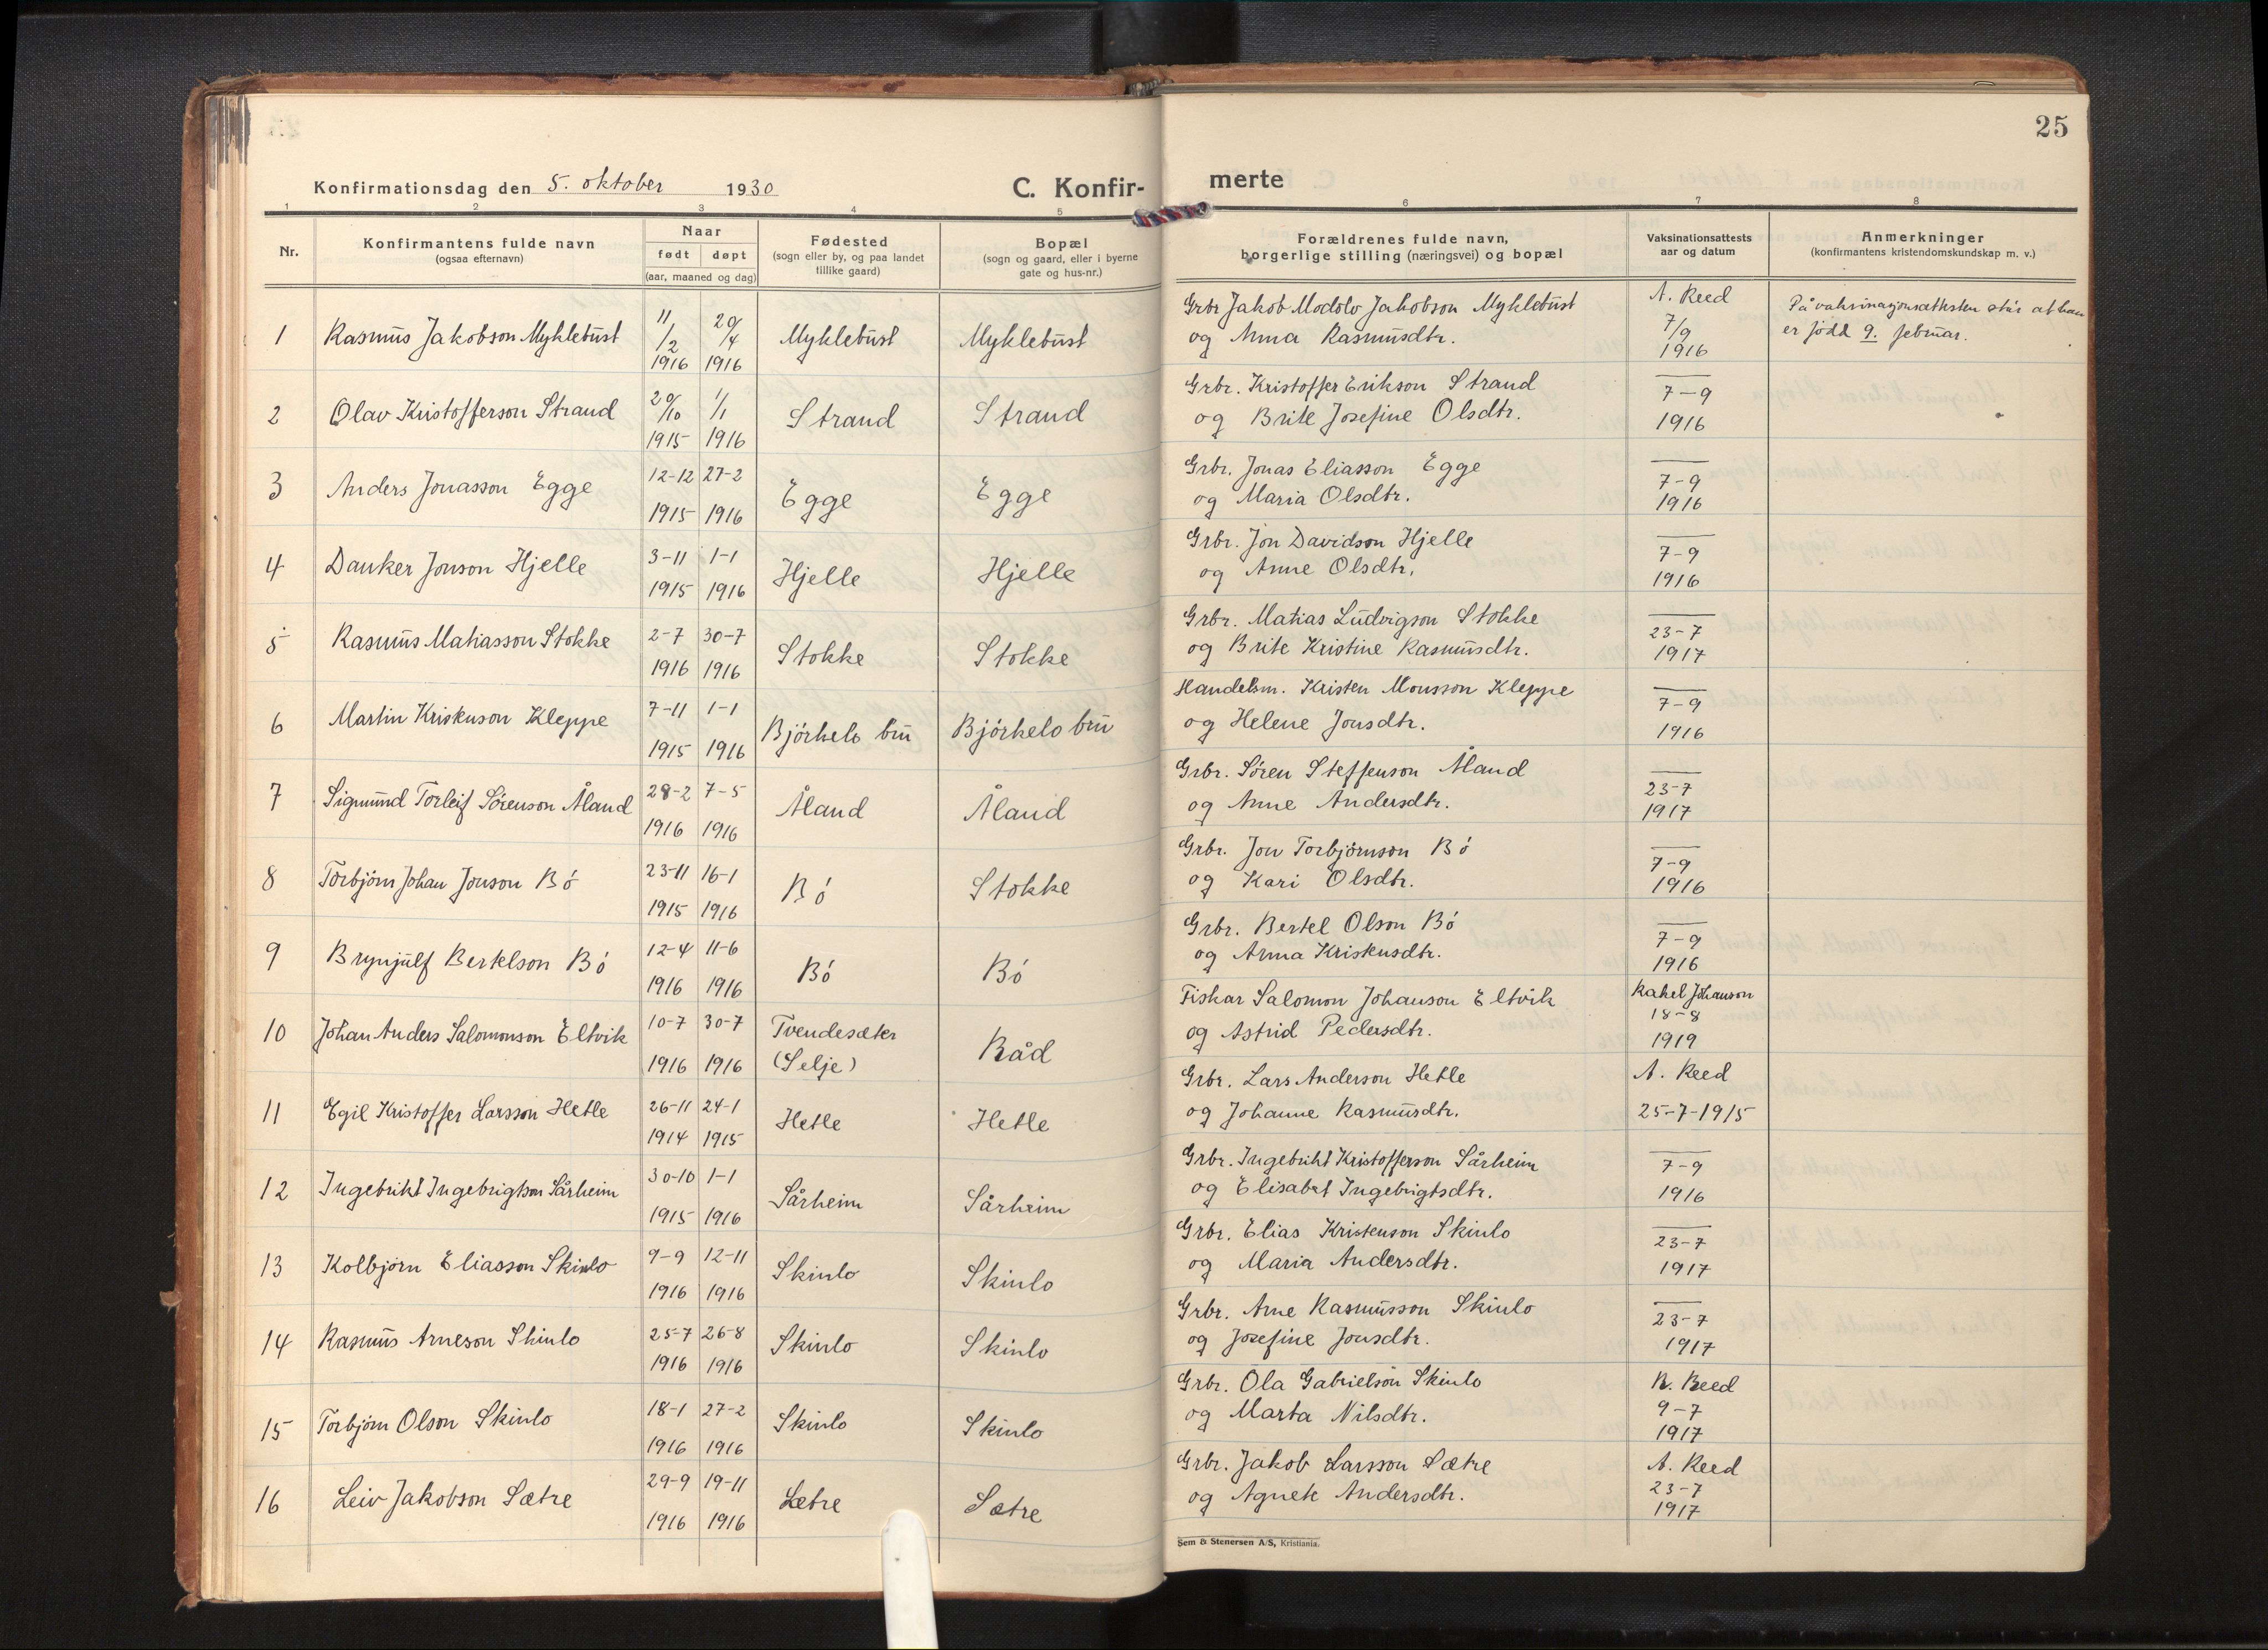 25
Konfirmationsdag den 5. oktober 1930
C. Konfir-
merte
1 2 3 4 5 6 7 8
Nr.
Konfirmantens fulde navn
(ogsaa efternavn)
Naar
født døpt
(aar, maaned og dag)
Fødested
(sogn eller by, og paa landet
tillike gaard)
Bopæl
(sogn og gaard, eller i byerne
gate og hus-nr.)
Forældrenes fulde navn,
borgerlige stilling (næringsvei) og bopæl
Vaksinationsattests
aar og datum
Anmerkninger
(konfirmantens kristendomskundskap m. v.)
1 Rasmus Jakobson Myklebust 11/2 1916 20/4 1916 Myklebust Myklebust
Grbr Jakob Modolv Jakobson Myklebust
og Anna Rasmusdtr.
A. Reed
7/9
1916
På vaksinasjonsattesten står at han
er født 9. februar.
2 Olav Kristofferson Strand 20/10 1915 1/1 1916 Strand Strand
Grbr. Kristoffer Erikson Strand
og Brite Josefine Olsdtr.
7-9
1916
3 Anders Jonasson Egge 12-12 1915 27-2 1916 Egge Egge
Grbr. Jonas Eliasson Egge
og Maria Olsdtr.
7-9
1916
4 Danker Jonson Hjelle 3-11 1915 1-1 1916 Hjelle Hjelle
Grbr. Jon Davidson Hjelle
og Anne Olsdtr.
7-9
1916
5 Rasmus Matiasson Stokke 2-7 1916 30-7 1916 Stokke Stokke
Grbr. Matias Ludvigson Stokke
og Brite Kristine Rasmusdtr.
23-7
1917
6 Martin Kristenson Kleppe 7-11 1915 1-1 1916 Bjórkelo bru Bjórkelo bru
Handelsm. Kristen Monsson Kleppe
og Helene Jonsdtr.
7-9
1916
7 Sigmund Torleif Sórenson Åland 28-2 1916 7-5 1916 Åland Åland
Grbr. Sóren Steffenson Åland
og Anne Andersdtr.
23-7
1917
8 Torbjórn Johan Jonson Bó 23-11 1915 16-1 1916 Bó Stokke
Grbr. Jon Torbjórnson Bó
og Kari Olsdtr.
7-9
1916
9 Brynjulf Bertelson Bó 12-4 1916 11-6 1916 Bó Bó
Grbr. Bertel Olson Bó
og Anna Kristensdtr.
7-9
1916
10 Johan Anders Salomonson Eltvik 10-7 1916 30-7 1916 Tvendesæter (Selje) Råd
Fiskar Salomon Johanson Eltvik
og Astrid Pedersdtr.
Rakel Johanson
18-8
1919
11 Egil Kristoffer Larsson Hetle 26-11 1914 24-1 1915 Hetle Hetle
Grbr. Lars Anderson Hetle
og Johanne Rasmusdtr.
A. Reed
25-7-1915
12 Ingebrikt Ingebrigtson Sårheim 30-10 1915 1-1 1916 Sårheim Sårheim
Grbr. Ingebrikt Kristofferson Sårheim
og Elisabet Ingebrigtsdtr.
7-9
1916
13 Kolbjórn Eliasson Skinlo 9-9 1916 12-11 1916 Skinlo Skinlo
Grbr. Elias Kristenson Skinlo
og Maria Andersdtr.
23-7
1917
14 Rasmus Arneson Skinlo 25-7 1916 26-8 1916 Skinlo Skinlo
Grbr. Arne Rasmusson Skinlo
og Josefine Jonsdtr.
23-7
1917
15 Torbjórn Olson Skinlo 18-1 1916 27-2 1916 Skinlo Skinlo
Grbr. Ola Gabrielson Skinlo
og Marta Nilsdtr.
R. Reed
9-7
1917
16 Leiv Jakobson Sætre 29-9 1916 19-11 1916 Sætre Sætre
Grbr. Jakob Larsson Sætre
og Agnete Andersdtr.
A. Reed
23-7
1917
Sem & Stenersen A/S, Kristiania.